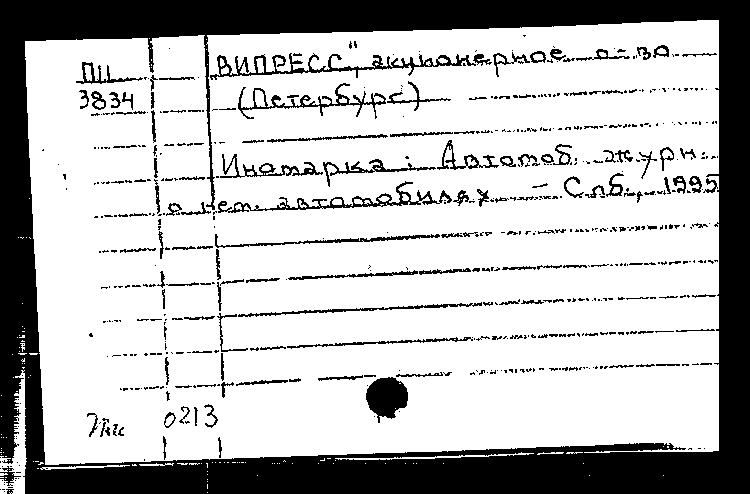 ПЦ "ВИПРЕСС", акционерное о-во
3834 (Петербург)
Иномарка: Автомоб. журн.
о нем. автомобилях. - Спб., 1995
0213